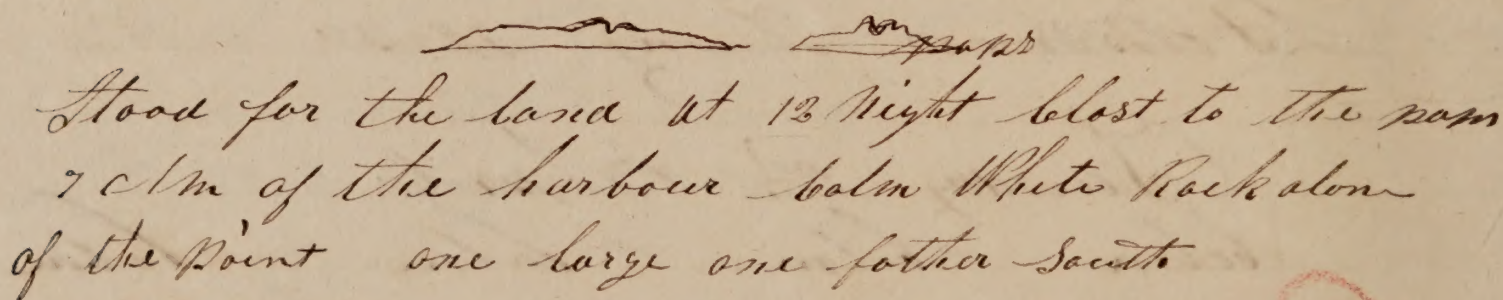 paps
Stood for the land at 12 Night Clost to the paps
7 AM of the harbour Calm White Rock alone
of the Point one large one father South